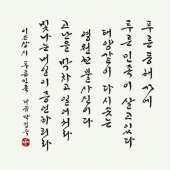 푸른 동해 가에
푸른 민족이 살고 있다
태양같이 다시 솟는
영원한 불사신이다
고난을 박차고 일어서라
빛나는 내일이 증언하리라
이은상 시 푸른민족